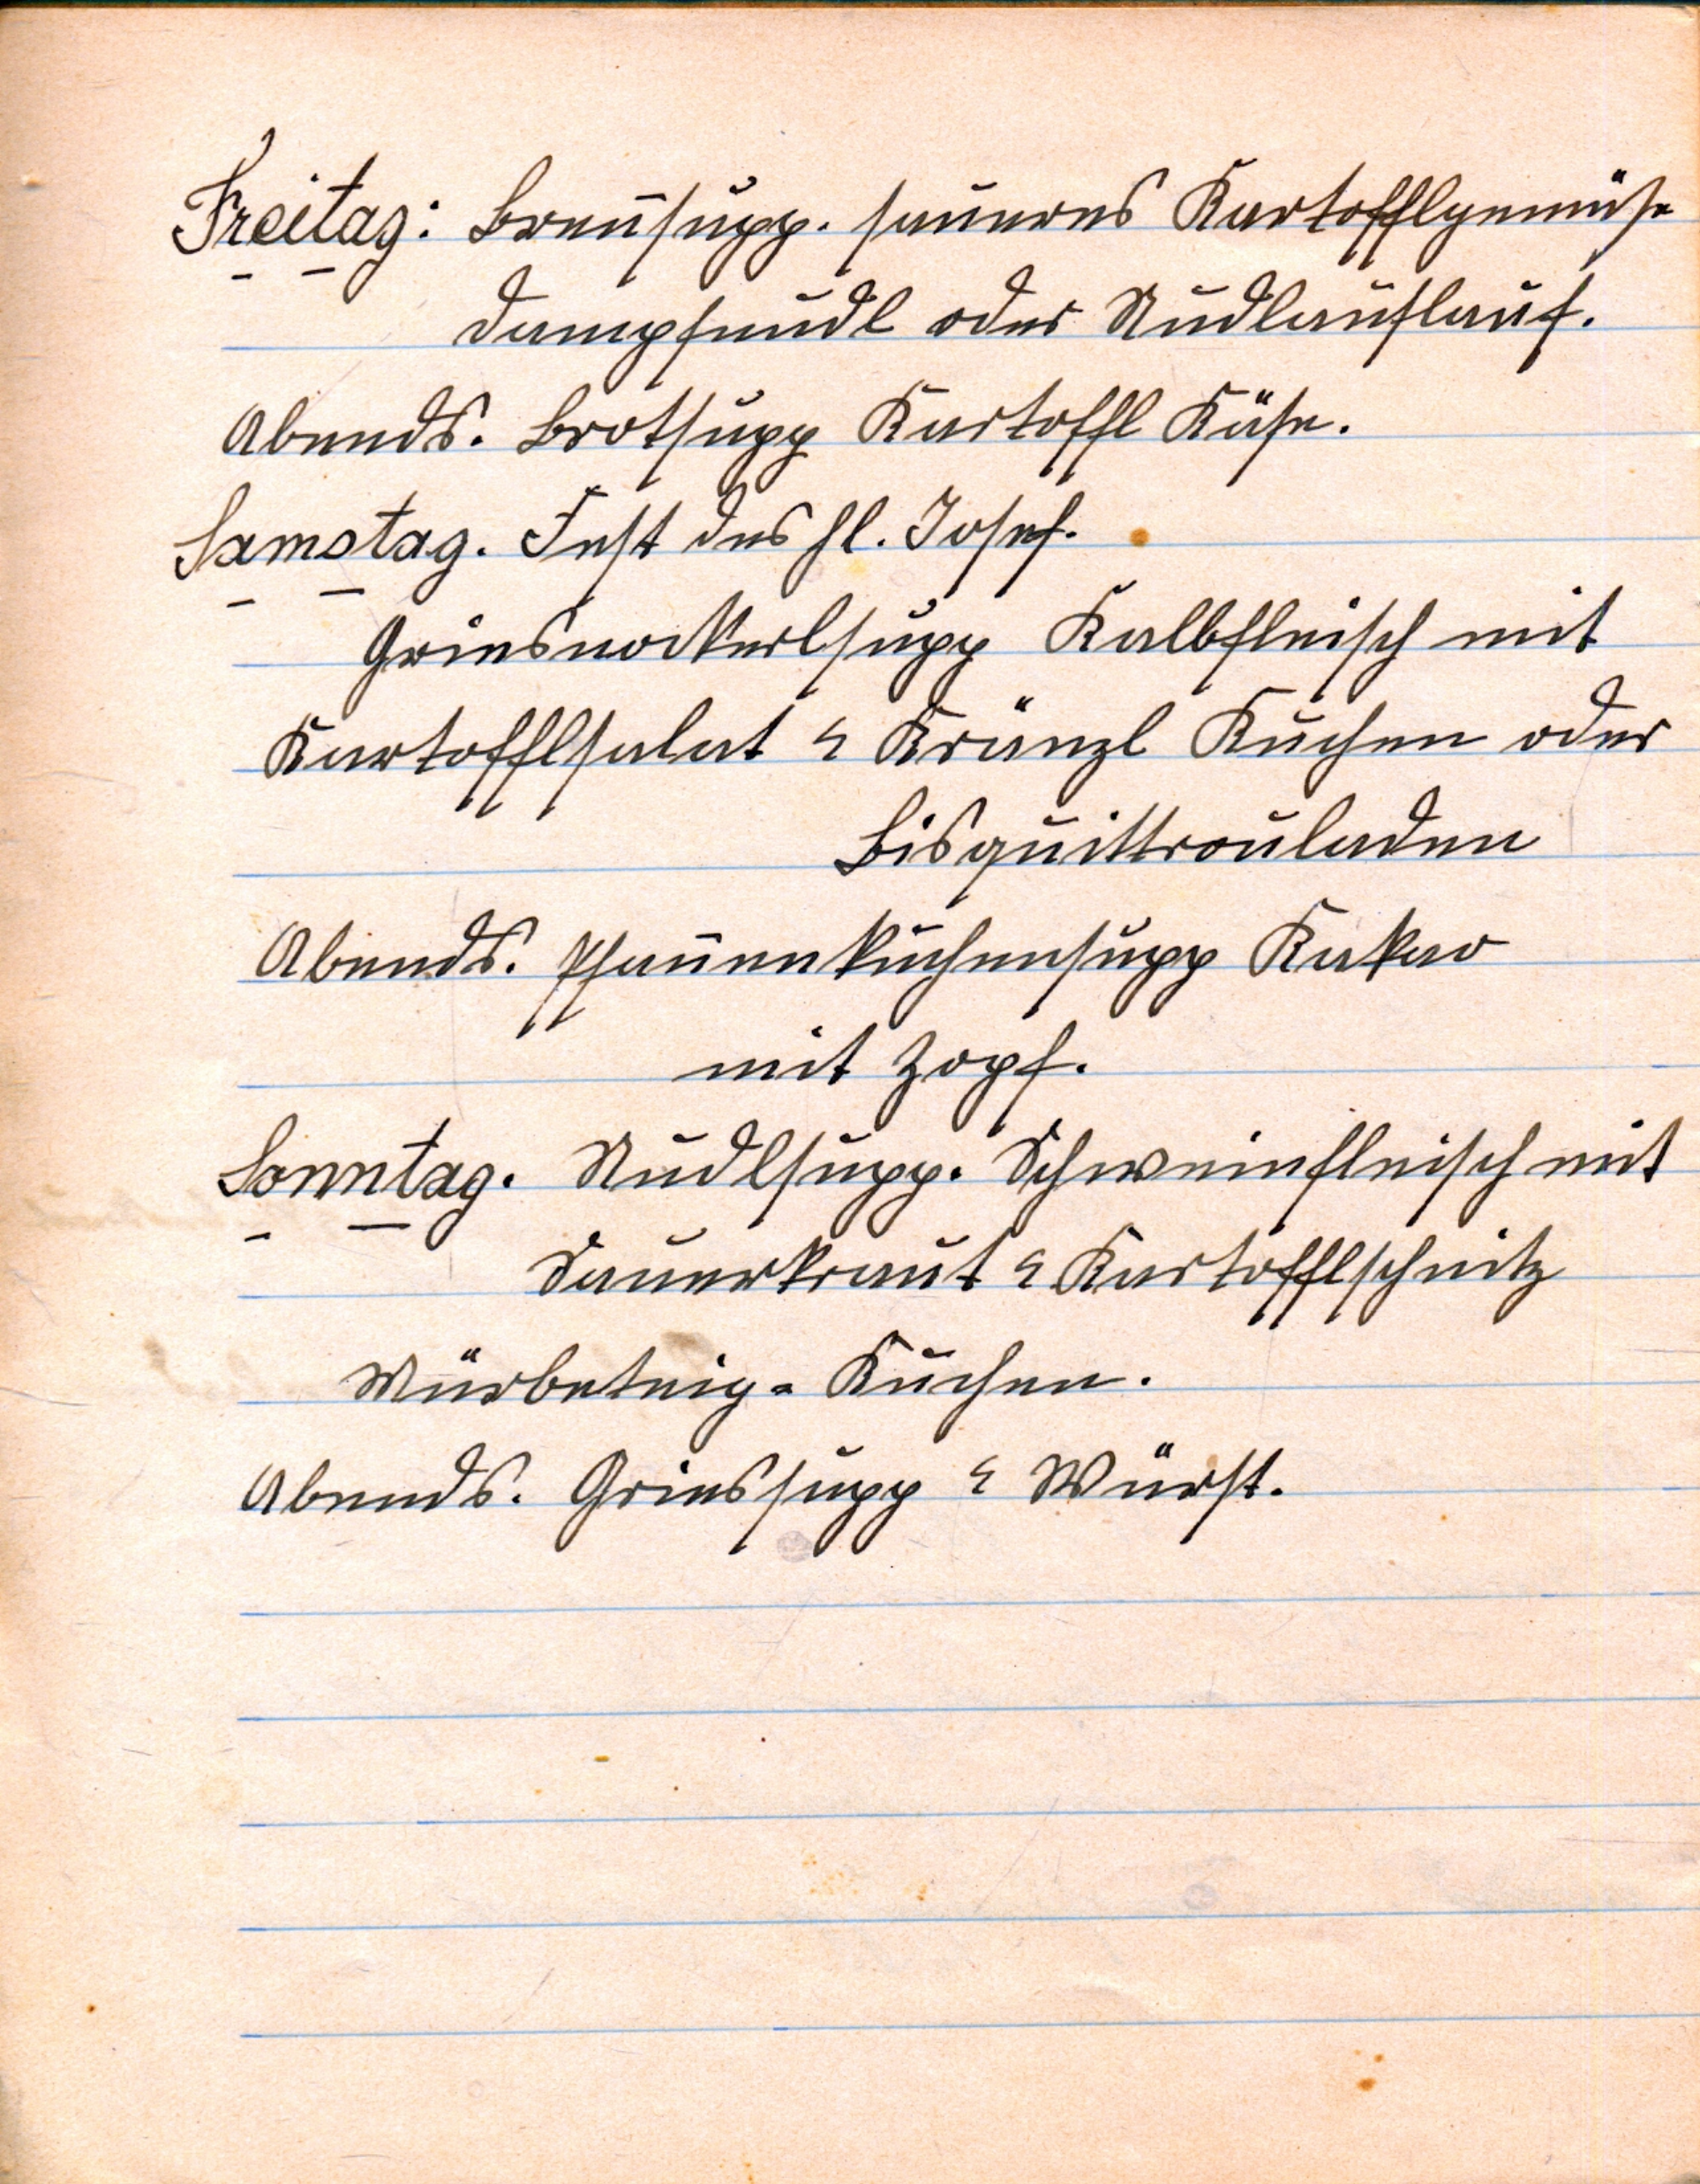 Freitag: Breñsupp. saueres Kartofflgemüse
Dampfnudl oder Nudlauflauf.
Abends. Brotsupp Kartoffl Käse.
Samstag. Fest des hl. Josef.
Griesnockerlsupp Kalbfleisch mit
Kartofflsalat & Kränzl Kuchen oder
Bisquittrouladen
Abends. Pfañenkuchensupp Kakao
mit Zopf.
Sonntag. Nudlsupp. Schweinfleisch mit
Sauerkraut & Kartofflschnitz
Mürbeteig-Kuchen.
Abends. Griessupp & Würst.